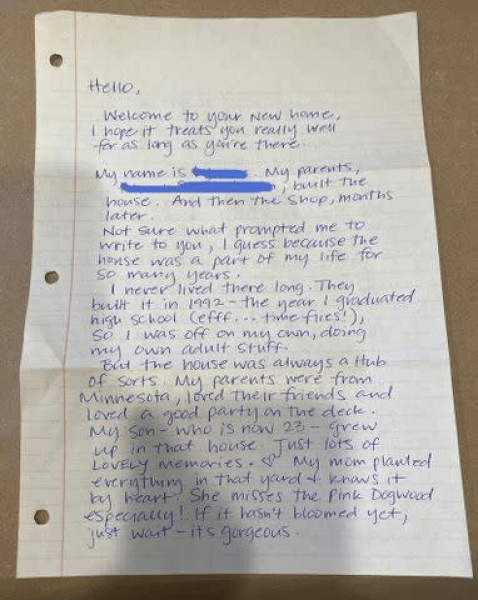 Hello,
Welcome to your New home,
I hope it treats you really well
for as long as you're there.
My name is
My parents,
, built the
house. And then the Shop, months
later.
Not sure what prompted me to
write to you, I guess because the
house was a part of my life for
so many years.
I never lived there long. They
built it in 1992 - the year I graduated
high school (efff... time flies!),
so I was off on my own, doing
my own adult stuff.
But the house was always a Hub
of sorts. My parents were from
Minnesota, loved their friends and
loved a good party on the deck.
My son - who is now 23 - grew
up in that house. Just lots of
LOVELY memories. ♡ My mom planted
everything in that yard & knows it
by heart! She misses the Pink Dogwood
especially! If it hasn't bloomed yet,
just wait - it's gorgeous.